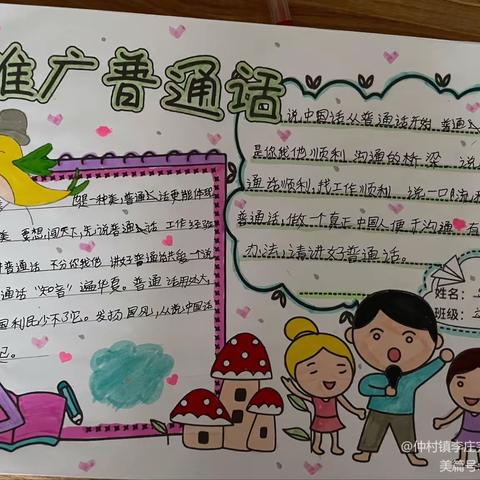 推广普通话
是一种美,普通话更能体现
美 要想闯天下,先说普通话 工作经验
讲普通话 不分你我他 讲好普通话共创一个说
通话 "知音"遍华夏。普通话用处大,
国利民少不了它。发扬国风,从说中国话
起。
说中国话从普通话开始 普通
是你我他顺利沟通的桥梁 说
通话顺利,找工作顺利 说一口流利
普通话,做一个真正中国人便于沟通 有
办法,请讲好普通话。
姓名:
班级:
@仲村镇李庄
美篇号